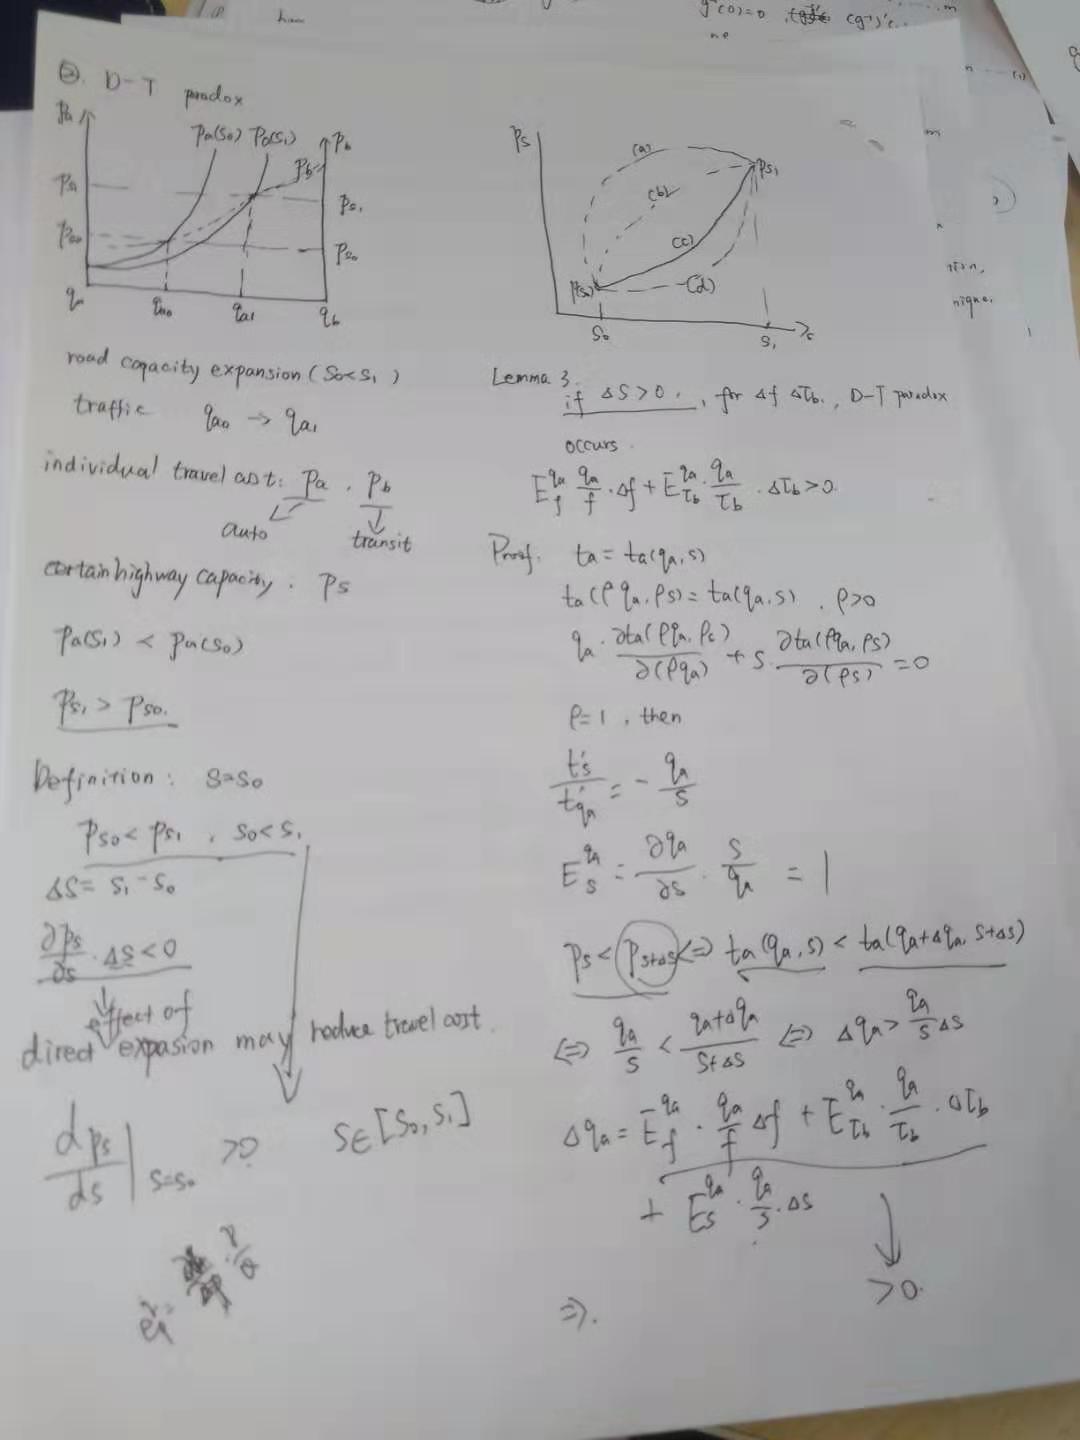 ②. D-T paradox
Pa
Pa(S₀) Pa(S₁)
Pb
Pb
Ps₁
Ps₁
Ps₀
Ps₀
qa
qa₀
qa₁
qb
road capacity expansion (S₀<S₁)
traffic qa₀ → qa₁
individual travel cost: Pa . Pb
auto
transit
certain highway capacity . Ps
Pa(S₁) < Pa(S₀)
Ps₁ > Ps₀.
Definition : S=S₀
Ps₀ < Ps₁ , S₀<S₁
ΔS = S₁-S₀
∂Ps/∂s · ΔS < 0
effect of
direct expasion may reduce travel cost.
dPs/ds | s=s₀ >0
S∈[S₀,S₁]
Ps
(a)
Ps₁
(b)
(c)
(d)
S₀
S₁
Lemma 3.
if ΔS>0. , for Δf Δτb. , D-T paradox
occurs.
E_f^qa qa/f · Δf + E_τb^qa · qa/τb · Δτb > 0.
Proof. ta = ta(qa,s)
ta(ρqa, ρs) = ta(qa,s) , ρ>0
qa · ∂ta(ρqa,ρs)/∂(ρqa) + s · ∂ta(ρqa,ρs)/∂(ρs) = 0
ρ=1 , then
t's/t'qa = - qa/s
E_s^qa = ∂qa/∂s · s/qa = 1
Ps < Ps+Δs <=> ta(qa,s) < ta(qa+Δqa, s+Δs)
<=> qa/s < qa+Δqa/s+Δs <=> Δqa > qa/s Δs
Δqa = E_f^qa · qa/f Δf + E_τb^qa · qa/τb · Δτb
+ E_s^qa · qa/s · Δs
>0.
=>.
g'(0)=0
ne